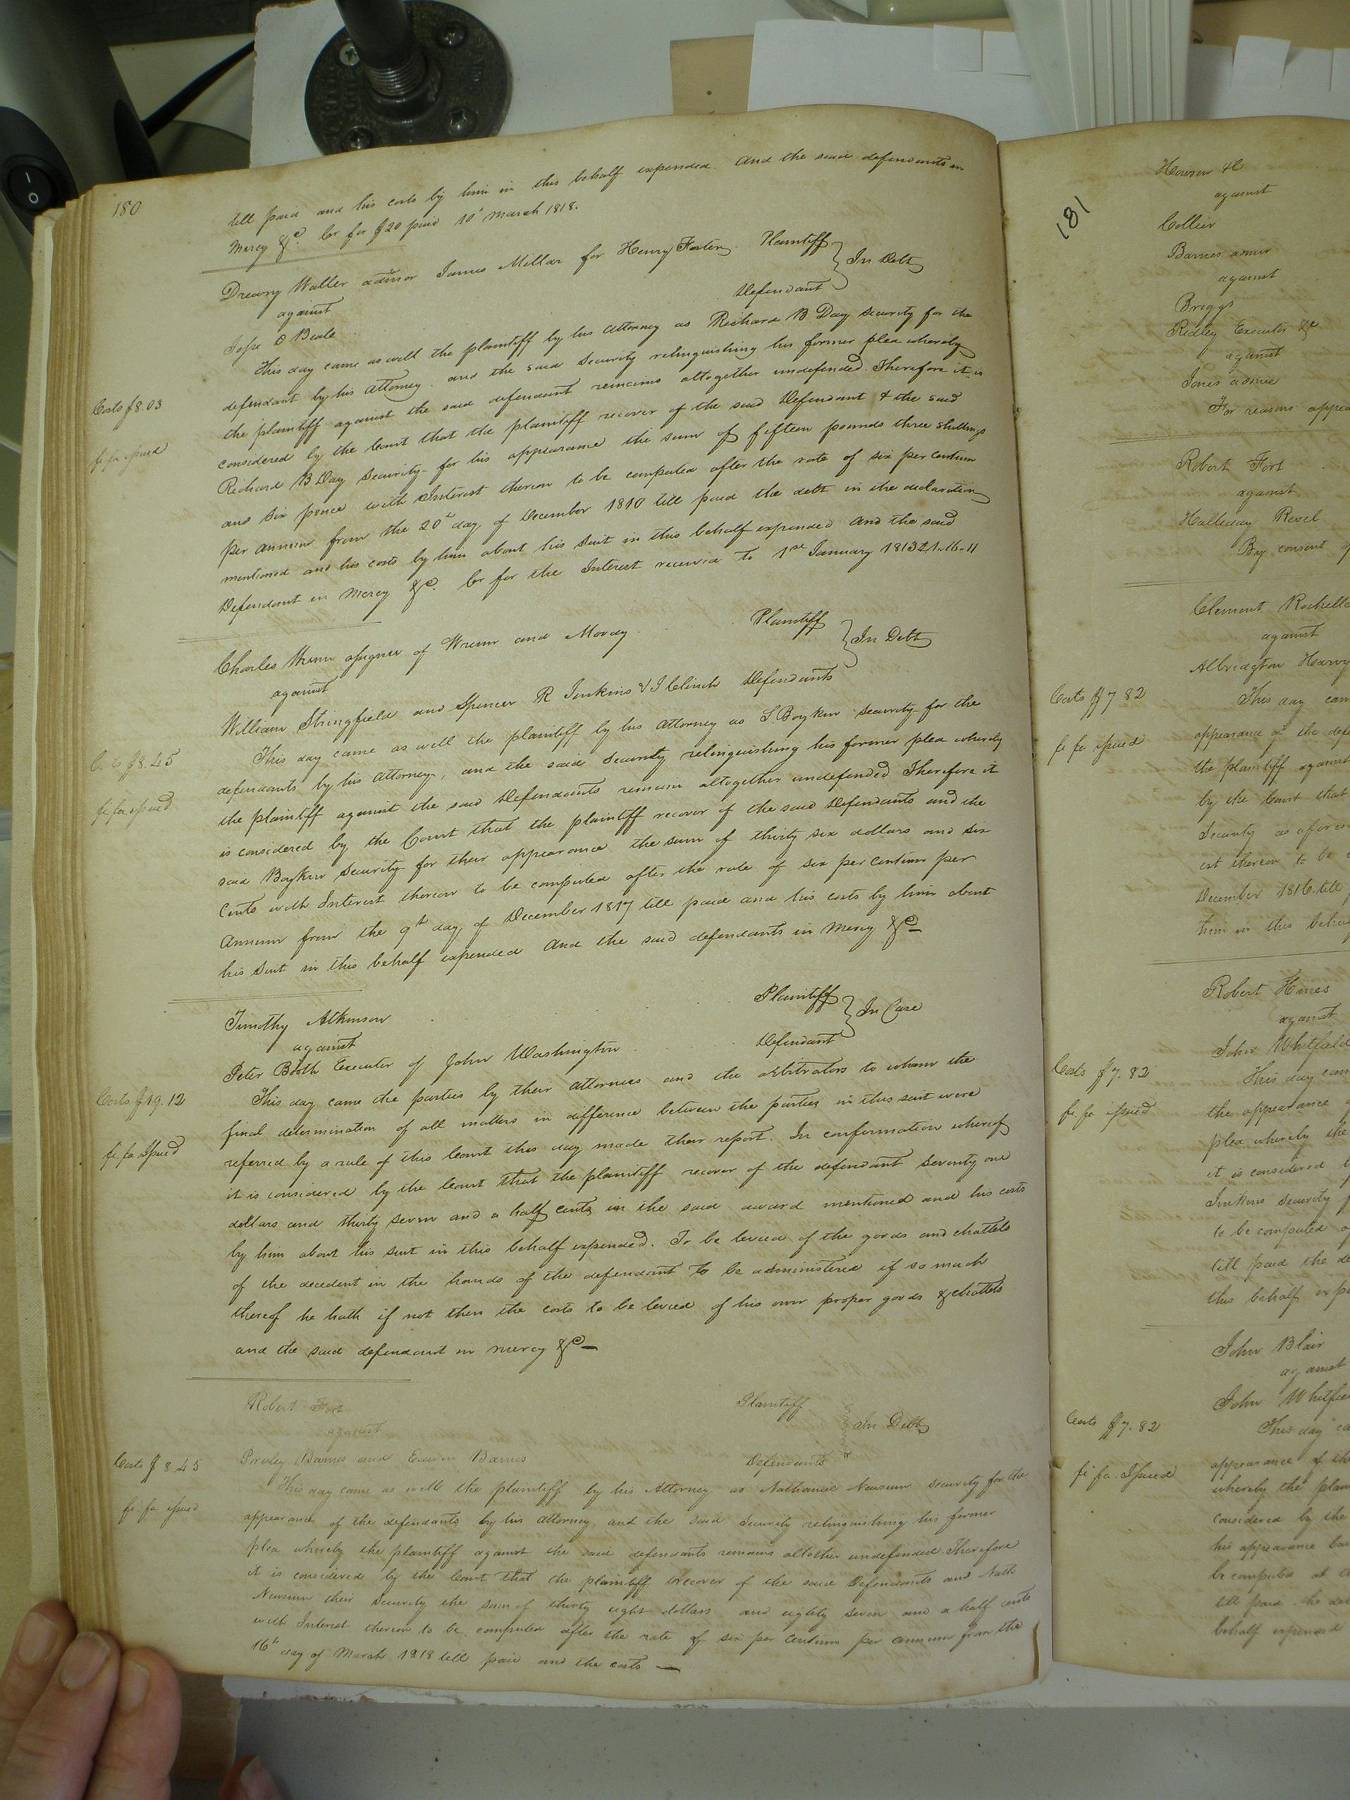 180
till paid and his costs by him in this behalf expended. And the said defendants in
Mercy &c. Cr for $20 paid 10th March 1818.
Dreury Waller admor James Millar for Henry Foster Plaintiff
against } In Debt
Jesse O Beale Defendant
This day came as well the plaintiff by his attorney as Richard B Day security for the
defendant by his attorney and the said security relinquishing his former plea whereby
the plaintiff against the said defendant remains altogether undefended. Therefore it is
Costs $8.03
considered by the Court that the plaintiff recover of the said Defendant & the said
fi fa issued
Richard B Day security for his appearance the sum of fifteen pounds three shillings
and six pence with Interest thereon to be computed after the rate of six per centum
per annum from the 20th day of December 1810 till paid the debt in the declaration
mentioned and his costs by him about his suit in this behalf expended and the said
Defendant in mercy &c. Cr for the Interest received to 1st January 1813
Charles Wrenn assignee of Wrenn and Moody Plaintiff
against } In Debt
William Stringfield and Spencer R Jenkins & J Clinch Defendants
This day came as well the plaintiff by his attorney as S. Boykin security for the
defendants by his attorney, and the said security relinquishing his former plea whereby
$8.45
the plaintiff against the said Defendants remain altogether undefended Therefore it
fi fa issued
is considered by the Court that the plaintiff recover of the said Defendants and the
said Boykin security for their appearance the sum of thirty six dollars and six
Cents with Interest thereon to be computed after the rate of six per centum per
Annum from the 9th day of December 1817 till paid and his costs by him about
his suit in this behalf expended And the said defendants in mercy &c
Timothy Atkinson Plaintiff
against } In Case
Peter Booth Executor of John Washington Defendant
Costs $19.12
This day came the parties by their attornies and the arbitrators to whom the
final determination of all matters in difference between the parties in this suit were
fi fa issued
referred by a rule of this Court this day made their report. In conformation whereof
it is considered by the Court that the plaintiff recover of the defendant seventy one
dollars and thirty seven and a half cents in the said award mentioned and his costs
by him about his suit in this behalf expended. To be levied of the goods and chattels
of the decedent in the hands of the defendant to be administered if so much
thereof he hath if not then the costs to be levied of his own proper goods & chattels
and the said defendant in mercy &c
Robert Fort Plaintiff
against } In Debt
Presley Barnes and Barnes Defendants
Costs $8.45
This day came as well the plaintiff by his Attorney as Nathaniel Newsum security for the
fi fa issued
appearance of the defendants by his attorney and the said security relinquishing his former
plea whereby the plaintiff against the said defendants remains altother undefended Therefore
it is considered by the Court that the plaintiff recover of the said Defendants and Nath
Newsum their security the sum of thirty eight dollars and eighty seven and a half cents
with Interest thereon to be computed after the rate of six per centum per annum from the
16th day of March 1818 till paid and the costs
181
against
Collier
Barnes admr
against
Briggs
Ridley Executor &c
against
Jones admr
For reasons appea
Robert Fort
against
Halleway Revel
By consent
Clement Rochelle
against
Albridgton Harry
Costs $7 82
This day cam
appearance of the def
fi fa issued
the plaintiff against
by the Court that
security as afores
est thereon to be
December 1816 till
him in this beha
Robert Hines
against
John Whitfield
Costs $7.82
This day cam
the appearance
fi fa issued
plea whereby the
it is considered
Jenkins security
to be computed
till paid the de
this behalf exp
John Blair
against
John Whitfie
Costs $7.82
This day ca
appearance of the
fi fa Issued
whereby the plain
considered by the
his appearance
be computed at
till paid the de
behalf expended